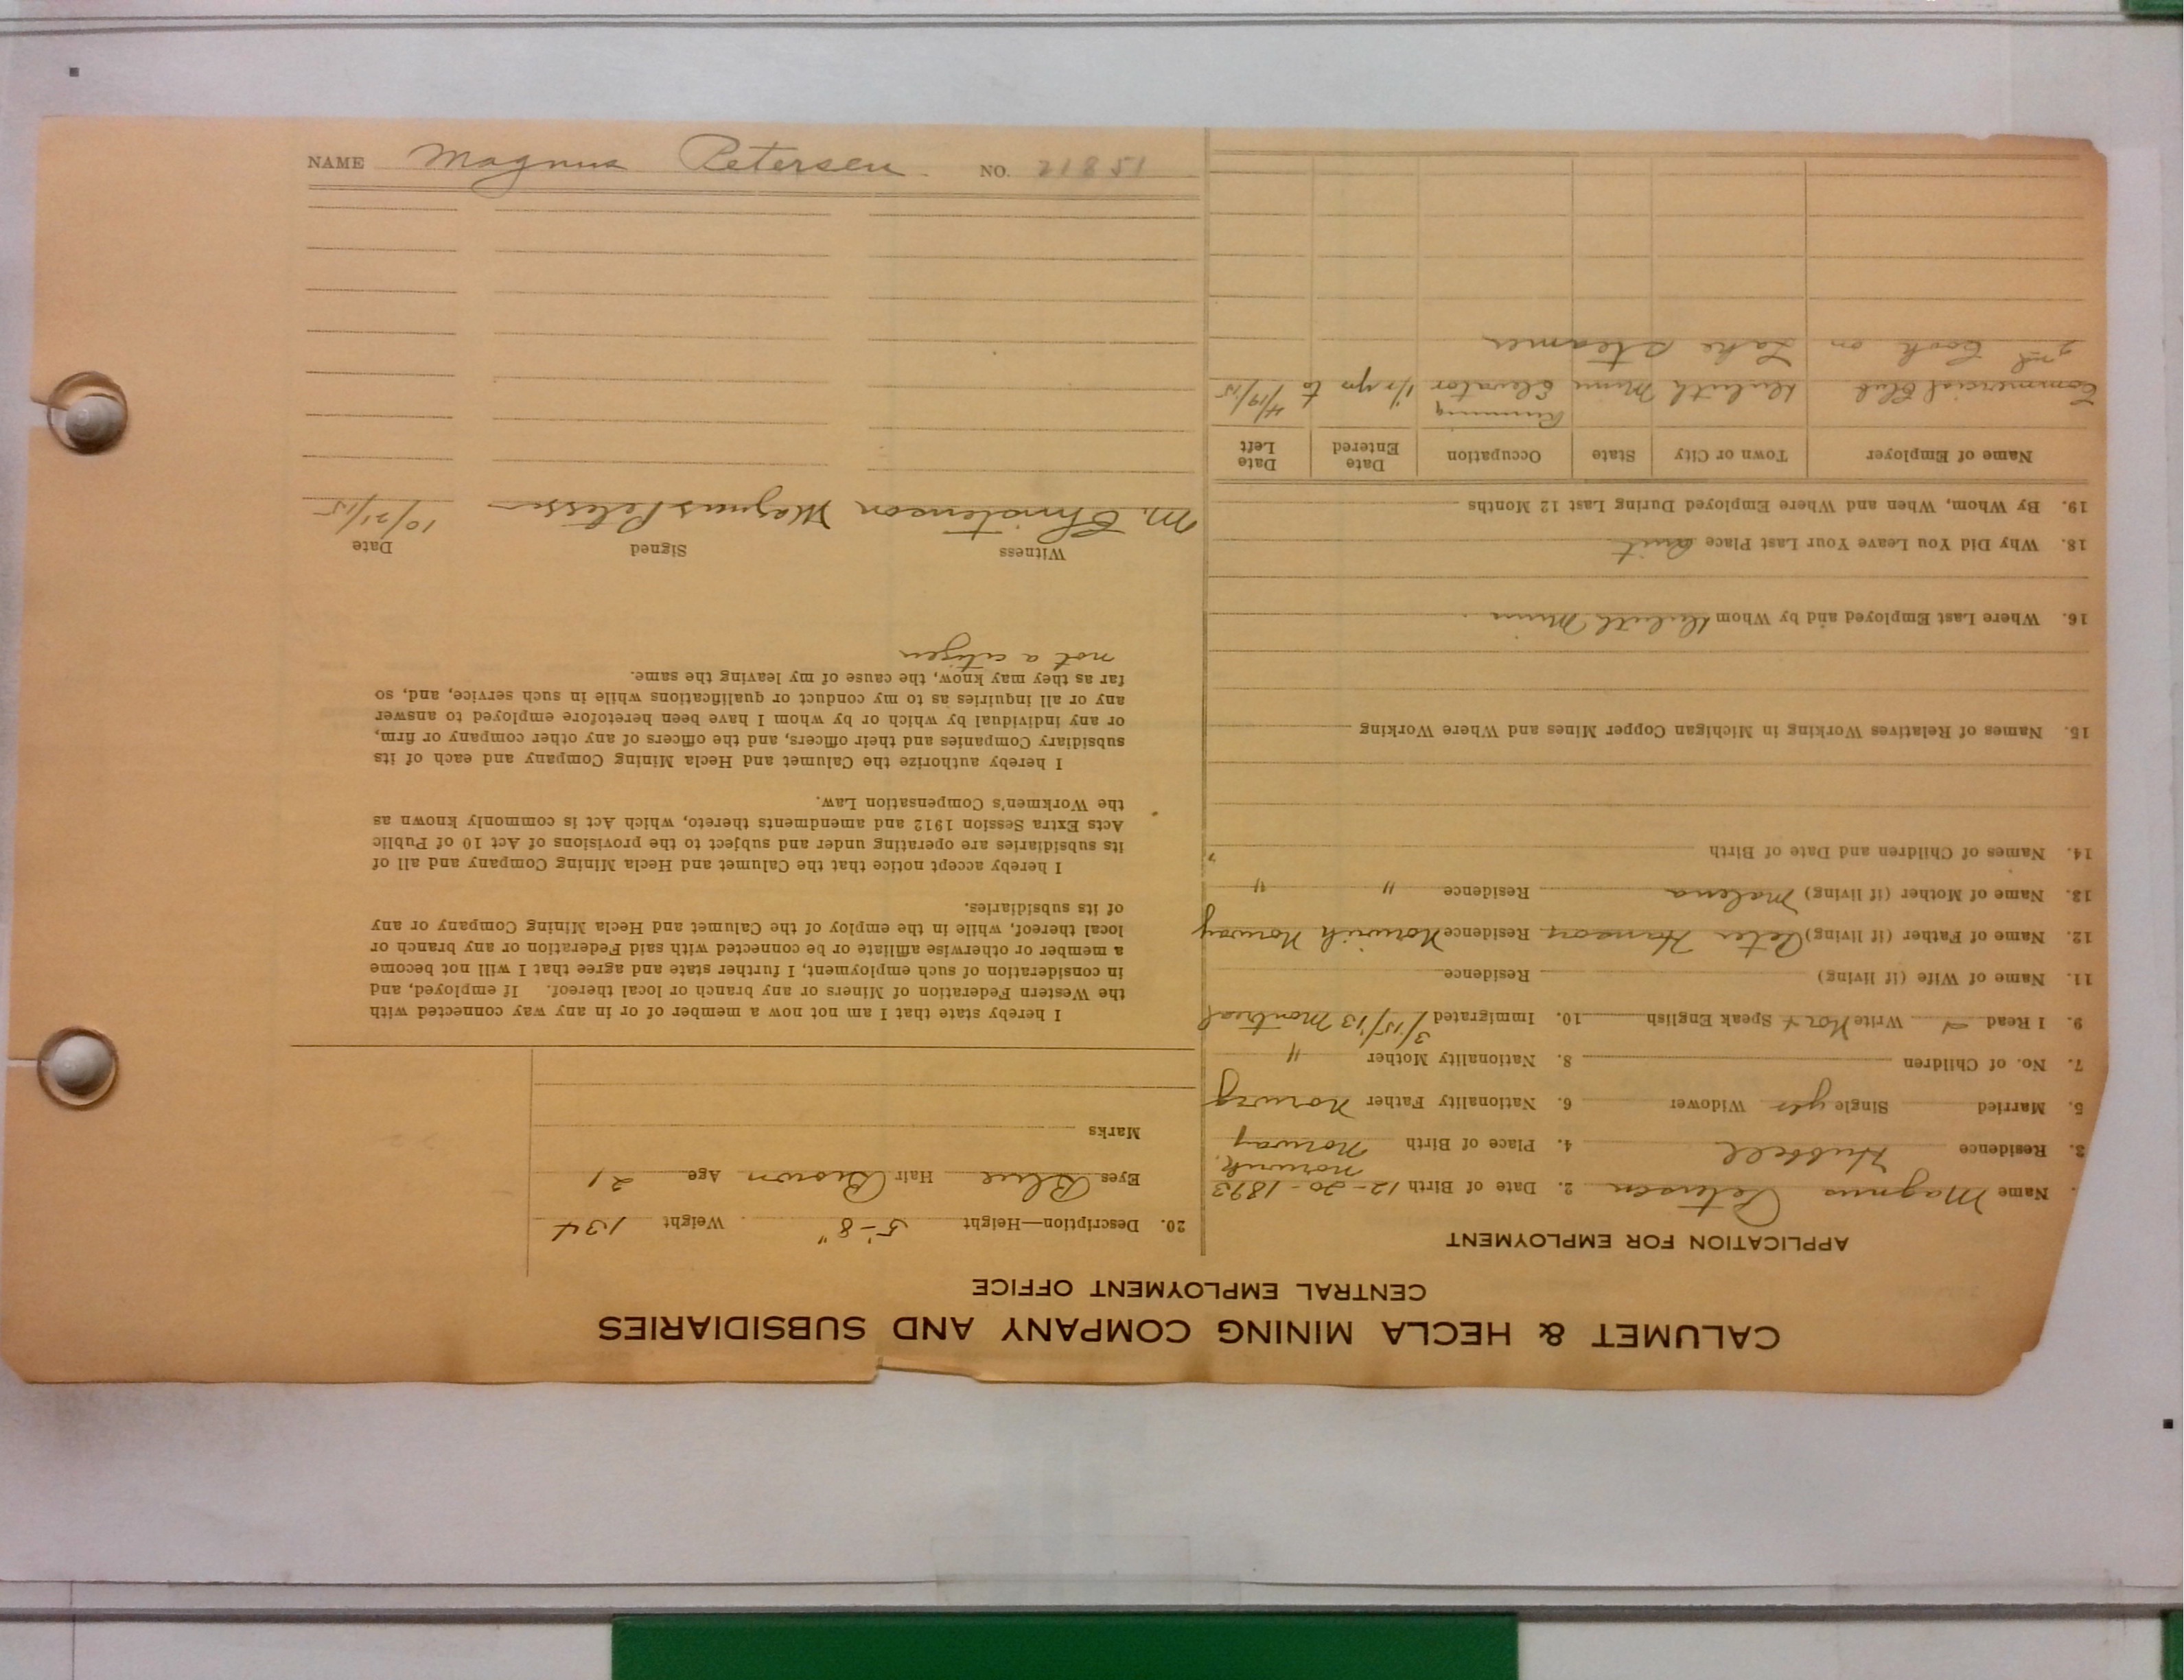 NAME Magnus Petersen NO. 21851
CALUMET & HECLA MINING COMPANY AND SUBSIDIARIES
CENTRAL EMPLOYMENT OFFICE
APPLICATION FOR EMPLOYMENT
Name Magnus Petersen 2. Date of Birth 12-20-1893
3. Residence Hubbell 4. Place of Birth Norwick, Norway
5. Married Single yes Widower 6. Nationality Father Norway
7. No. of Children 8. Nationality Mother "
9. I Read Write Speak English 10. Immigrated 3/15/13 Montreal
11. Name of Wife (if living) Residence
12. Name of Father (if living) Peter Hanson Residence Norwich Norway
13. Name of Mother (if living) Malena Residence " "
14. Names of Children and Date of Birth
15. Names of Relatives Working in Michigan Copper Mines and Where Working
16. Where Last Employed and by Whom Duluth Minn
18. Why Did You Leave Your Last Place Quit
19. By Whom, When and Where Employed During Last 12 Months
Name of Employer Town or City State Occupation Date Entered Date Left
Commercial Club Duluth Minn Running Elevator 1/2 yrs to 4/19/15
2nd Cook on Lake Steamer
20. Description—Height 5-8" Weight 134
Eyes Blue Hair Brown Age 21
Marks
I hereby state that I am not now a member of or in any way connected with
the Western Federation of Miners or any branch or local thereof. If employed, and
in consideration of such employment, I further state and agree that I will not become
a member or otherwise affiliate or be connected with said Federation or any branch or
local thereof, while in the employ of the Calumet and Hecla Mining Company or any
of its subsidiaries.
I hereby accept notice that the Calumet and Hecla Mining Company and all of
its subsidiaries are operating under and subject to the provisions of Act 10 of Public
Acts Extra Session 1912 and amendments thereto, which Act is commonly known as
the Workmen's Compensation Law.
I hereby authorize the Calumet and Hecla Mining Company and each of its
subsidiary Companies and their officers, and the officers of any other company or firm,
or any individual by which or by whom I have been heretofore employed to answer
any or all inquiries as to my conduct or qualifications while in such service, and, so
far as they may know, the cause of my leaving the same.
not a citizen
Witness Signed Date
M. Christenson Magnus Petersen 10/21/15